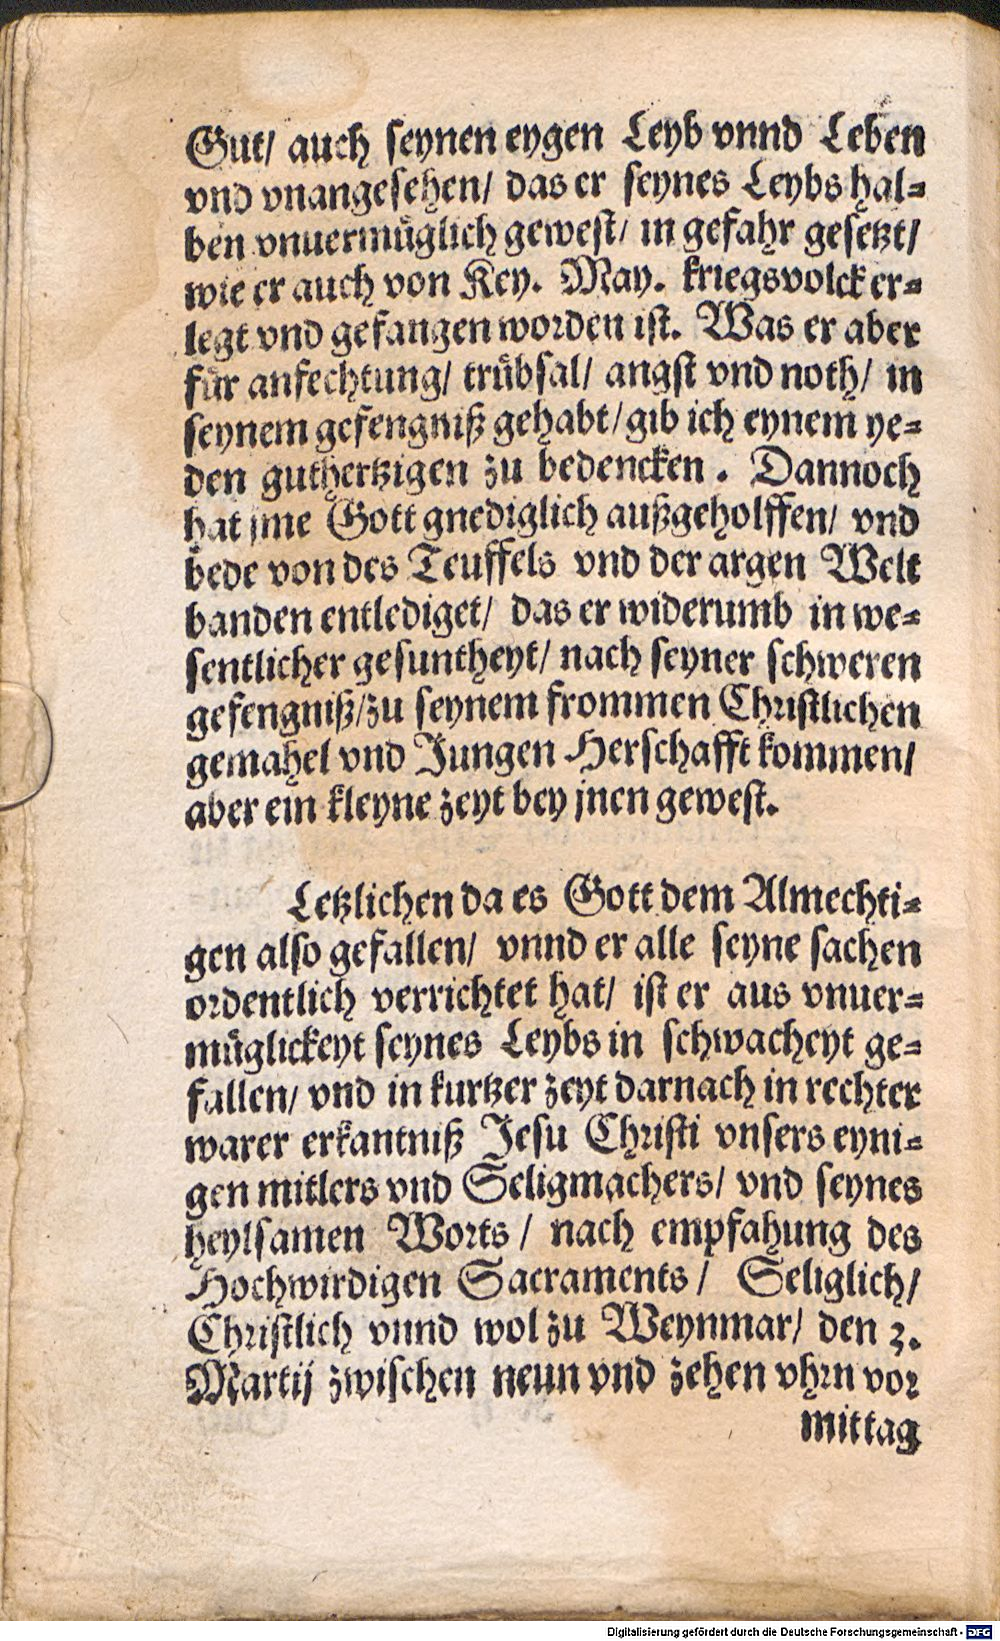 Gut/ auch seynen eygen Leyb vnnd Leben
vnd vnangesehen/ das er seynes Leybs hal-
ben vnuermüglich gewest/ in gefahr gesetzt/
wie er auch von Key. May. kriegsvolck er-
legt vnd gefangen worden ist. Was er aber
für anfechtung/ trübsal/ angst vnd noth/ in
seynem gefengniß gehabt/ gib ich eynem ye-
den guthertzigen zu bedencken. Dannoch
hat jme Gott gnediglich außgeholffen/ vnd
bede von des Teuffels vnd der argen Welt
banden entlediget/ das er widerumb in we-
sentlicher gesuntheyt/ nach seyner schweren
gefengniß/ zu seynem frommen Christlichen
gemahel vnd Jungen Herschafft kommen/
aber ein kleyne zeyt bey jnen gewest.
Letzlichen da es Gott dem Almechti-
gen also gefallen/ vnnd er alle seyne sachen
ordentlich verrichtet hat/ ist er aus vnuer-
müglickeyt seynes Leybs in schwacheyt ge-
fallen/ vnd in kurtzer zeyt darnach in rechter
warer erkantniß Jesu Christi vnsers eyni-
gen mitlers vnd Seligmachers/ vnd seynes
heylsamen Worts/ nach empfahung des
Hochwirdigen Sacraments/ Seliglich/
Christlich vnnd wol zu Weynmar/ den 3.
Martij zwischen neun vnd zehen vhrn vor
mittag
Digitalisierung gefördert durch die Deutsche Forschungsgemeinschaft - DFG